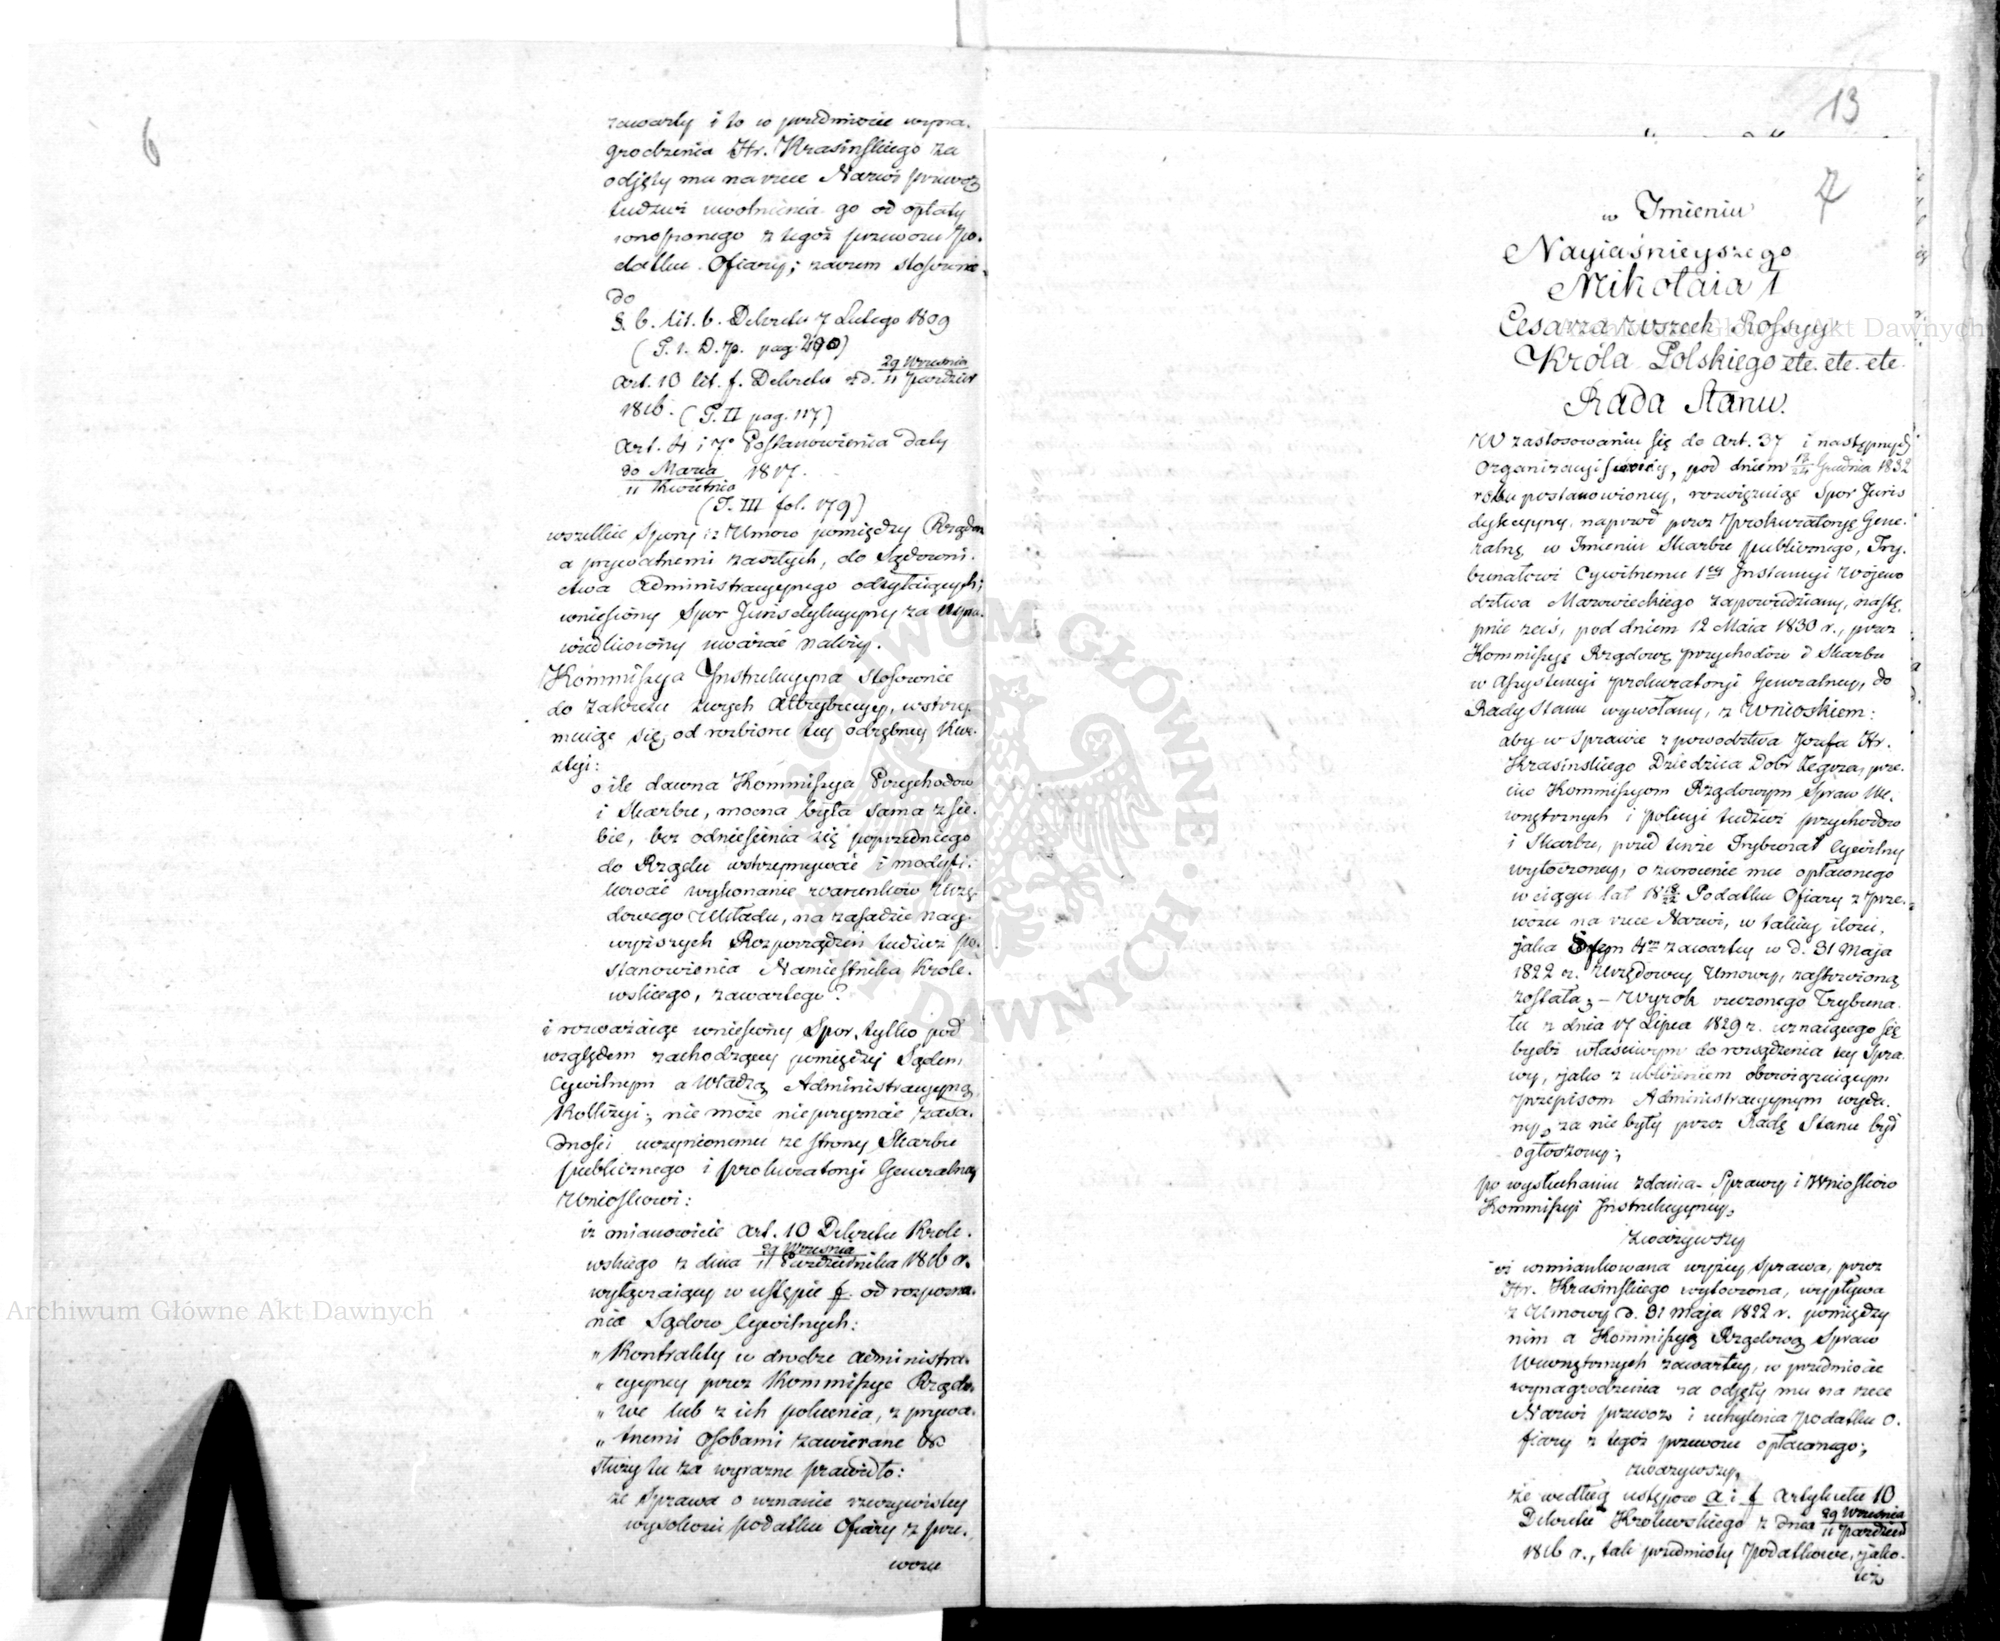 6
zawarty i to w przedmiocie wyna-
grodzenia Hr. Krasinskiego za
odjęty mu na rzece Narwi przewóz
tudzież uwolnienia go od opłaty
wnoszonego z tegoż przewozu Po-
datku Ofiary; zatem stosownie
do
§. 6. lit. b. Dekretu 7 Lutego 1809
(T. 1. D. p. pag.
Art. 10 lit. f. Dekretu z d. 29 Września
11 Paździer
1816. (T. II pag. 117)
Art. 4 i 7º Postanowienia daty
30 Marca
11 Kwietnia 1817.
(T. III fol. 179)
wszelkie Spory z Umów pomiędzy Rządem
a prywatnemi zaszłych, do Sądowni-
ctwa Administracyjnego odsyłających;
wniesiony Spór Jurisdykcyjny za uspra-
wiedliwiony uważać należy.
Kommissya Instrukcyjna stosownie
do zakresu swych Attrybucyj, wstrzy-
muiąc się od rozbioru tej odrębnej Kwe-
styi:
o ile dawna Kommissya Przychodów
i Skarbu, mocna była sama z sie-
bie, bez odniesienia się poprzedniego
do Rządu wstrzymywać i modyfi-
kować wykonanie warunków Urzę-
dowego Układu, na zasadzie nay-
wyższych Rozporządzeń tudzież Po-
stanowienia Namiestnika Króle-
wskiego, zawartego?
i rozważaiąc wniesiony Spór, tylko pod
względem zachodzącej pomiędzy Sądem
Cywilnym a Władzą Administracyjną
Kollizyi; nie może nieprzyznać zasa-
dności uczynionemu ze strony Skarbu
publicznego i Prokuratoryi Generalnej
Wnioskowi:
iż mianowicie Art. 10 Dekretu Króle-
wskiego z dnia 29 Września
11 Października 1816 r.
wyłączaiący w ustępie f. od rozpozna-
nia Sądów Cywilnych:
„Kontrakty w drodze administra-
„cyjnej przez Kommissye Rządo-
„we lub z ich polecenia, z prywa-
„tnemi osobami zawierane
służy tu za wyraźne prawidło:
że Sprawa o uznanie rzeczywistej
wysokości podatku Ofiary z prze-
wozu
13
7
w Imieniu
Nayiaśnieyszego
Mikołaia I
Cesarza wszech Rossyy
Króla Polskiego etc. etc. etc.
Rada Stanu.
W zastosowaniu się do Art. 37 i następnych
Organizacyi swoiey, pod dniem 12/24 Grudnia 1832
roku postanowioney, rozwiązuiąc Spór Juris
dykcyjny naprzód przez Prokuratoryę Gene-
ralną w Imieniu Skarbu publicznego, Try-
bunałowi Cywilnemu 1ey Instancyi Wojewo
dztwa Mazowieckiego zapowiedziany, nastę-
pnie zaś, pod dniem 12 Maia 1830 r., przez
Kommissyę Rządową przychodów i Skarbu
w Assystencyi Prokuratoryi Generalney, do
Rady Stanu wywołany, z Wnioskiem:
aby w Sprawie z powodztwa Jozefa Hr.
Krasinskiego Dziedzica Dobr Zegrza, prze-
ciw Kommissyom Rządowym Spraw We-
wnętrznych i policyi tudzież przychodów
i Skarbu, przed tenże Trybunał Cywilny
wytoczoney, o zwrócenie mu opłaconego
w ciągu lat 18 Podatku Ofiary z prze-
wozu na rzece Narwi, w takiey ilości,
jaka §fem 4m zawartey w d. 31 Maja
1822 r. Urzędowey Umowy, zastrzeżoną
została; – Wyrok rzeczonego Trybuna-
łu z dnia 17 Lipca 1829 r. uznaiącego się
bydź właściwym do rozsądzenia tey Spra-
wy, jako z ubliżeniem obowiązuiącym
przepisom Administracyjnym wyda-
ny, za niebyły przez Radę Stanu był
ogłoszony;
po wysłuchaniu zdania Sprawy i Wniosków
Kommissyi Instrukcyjney,
Zważywszy
iż wzmiankowana wyżey Sprawa, przez
Hr. Krasińskiego wytoczona, wypływa
z Umowy d. 31 Maja 1822 r. pomiędzy
nim a Kommissyą Rządową Spraw
Wewnętrznych zawartey, w przedmiocie
wynagrodzenia za odjęty mu na rzece
Narwi przewóz i uchylenia Podatku O-
fiary z tegoż przewozu opłacanego;
Zważywszy,
że według ustępów a i f Artykułu 10
Dekretu Królewskiego z dnia 29 Września
11 Paździer
1816 r., tak przedmioty Podatkowe, jako-
też
Archiwum Główne Akt Dawnych
Archiwum Główne Akt Dawnych
ARCHIWUM GŁÓWNE AKT DAWNYCH